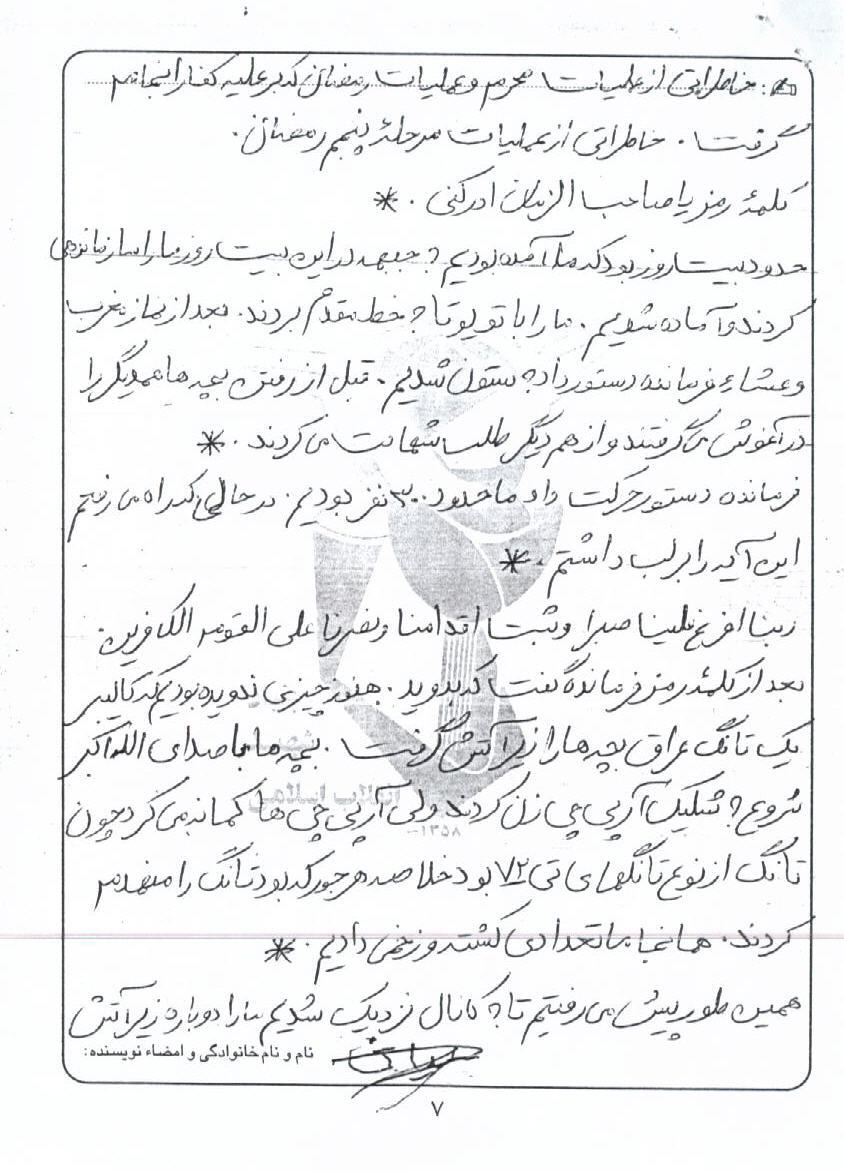 خاطراتی از عملیات محرم و عملیات رمضان که بر علیه کفار انجام
گرفت. خاطراتی از عملیات مرحلهٔ پنجم رمضان.
کلمهٔ رمز یا صاحب الزمان ادرکنی. *
حدود بیست روز بود که ما آمده بودیم به جبهه در این بیست روز ما را سازماندهی
کردند و آماده شدیم. ما را با تویوتا به خط مقدم بردند. بعد از نماز مغرب
و عشاء فرمانده دستور داد به ستون شدیم. قبل از رفتن بچه ها همدیگر را
در آغوش می گرفتند و از هم دیگر طلب شهادت می کردند. *
فرمانده دستور حرکت داد ما حدود ۳۰۰ نفر بودیم. در حالی که راه می رفتم
این آیه را بر لب داشتم. *
ربنا افرغ علینا صبرا و ثبت اقدامنا و نصرنا علی القوم الکافرین.
بعد از کلمهٔ رمز فرمانده گفت که بدوید. هنوز چیزی ندویده بودیم که کالیبر
یک تانک عراق بچه ها را زیر آتش گرفت. بچه ها با صدای الله اکبر
شروع به شلیک آرپی جی زن کردند ولی آرپی جی ها کمانه می کرد چون
تانک از نوع تانگهای تی ۷۲ بود خلاصه هر جور که بود تانک را منهدم
کردند. همانجا ما تعدادی کشته و زخمی دادیم. *
همین طور پیش می رفتیم تا به کانال نزدیک شدیم ما را دوباره زیر آتش
نام و نام خانوادگی و امضاء نویسنده:
انقلاب اسلامی
۱۳۵۸
۷